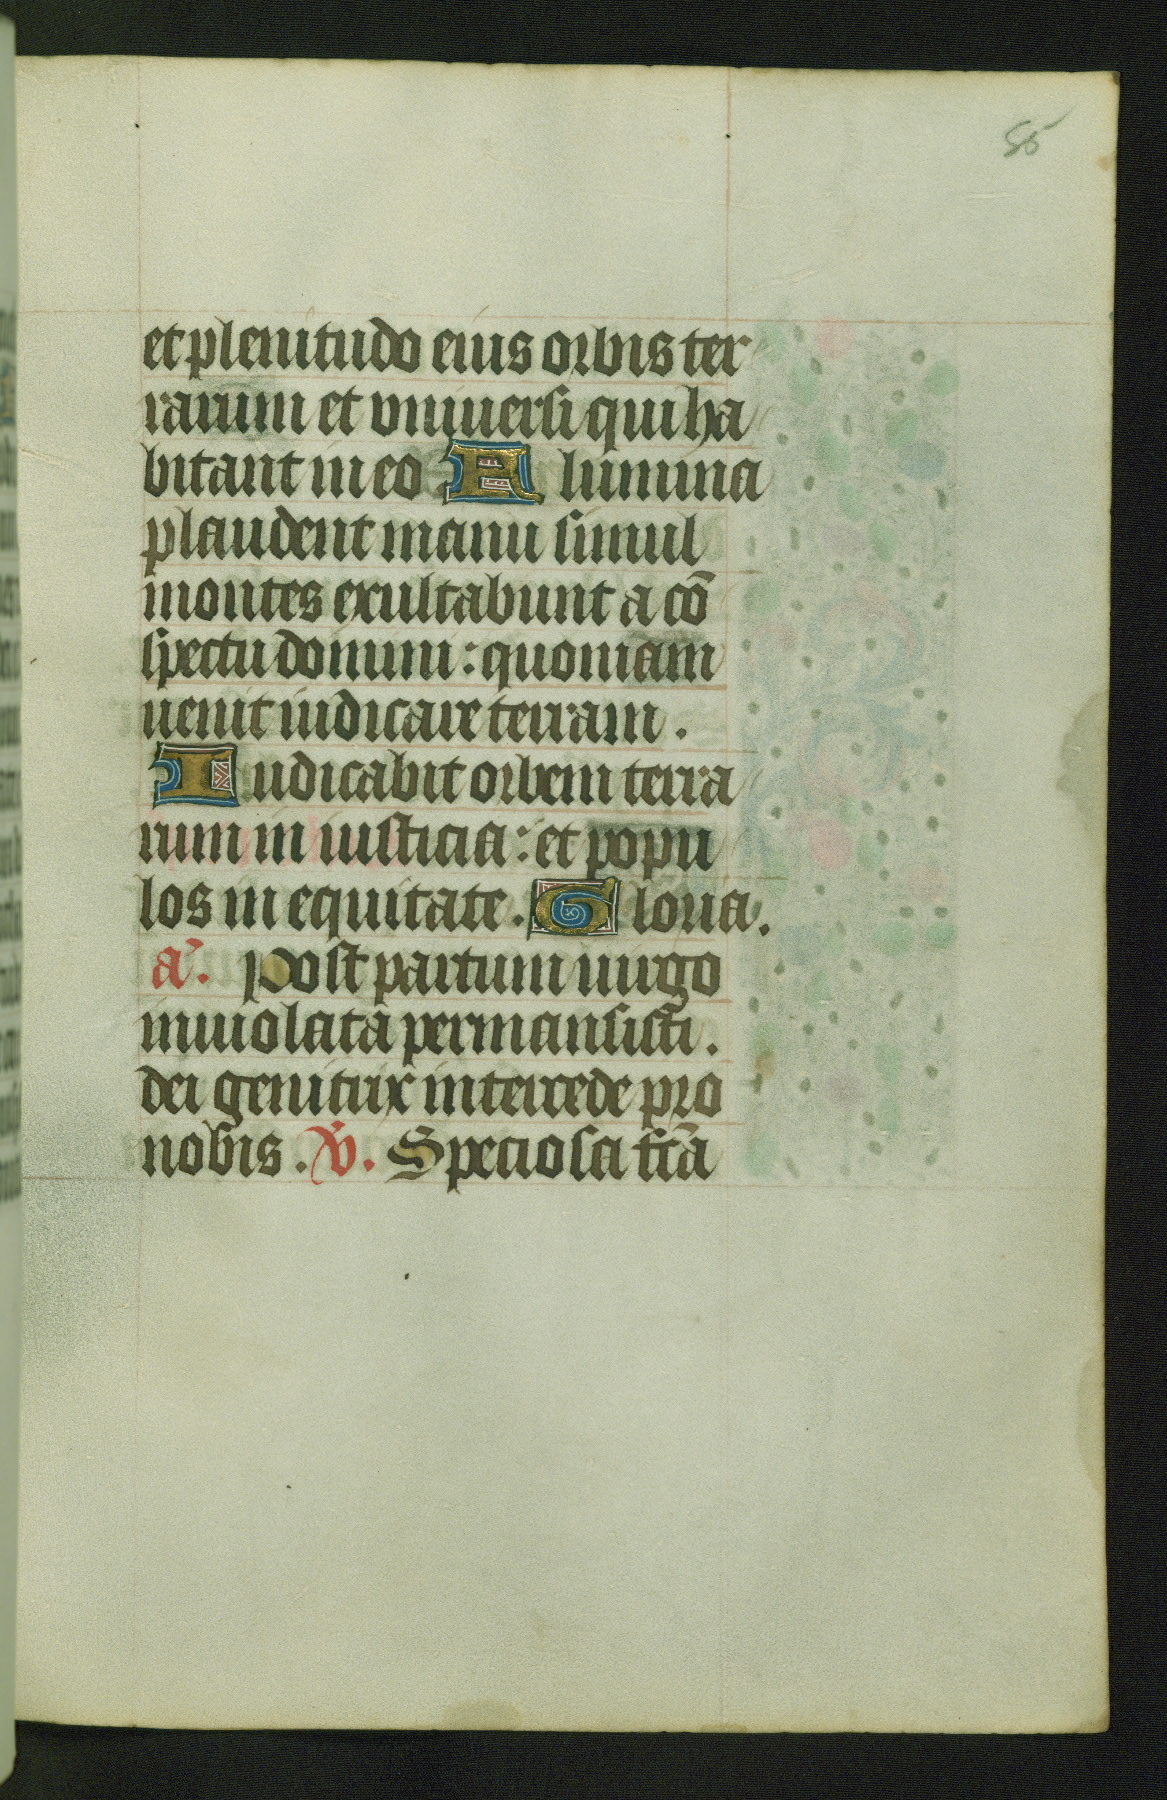 85
et plenitudo eius orbis ter
rarum et vniuersi qui ha
bitant in eo Flumina
plaudent manu simul
montes exultabunt a cō
spectu domini : quoniam
uenit iudicare terram .
Iudicabit orbem terra
rum in iusticia : et popu
los in equitate . Gloria .
a͂ . Post partum uirgo
inuiolata permansisti .
dei genitrix intercede pro
nobis . ℣ . Speciosa fc̄a